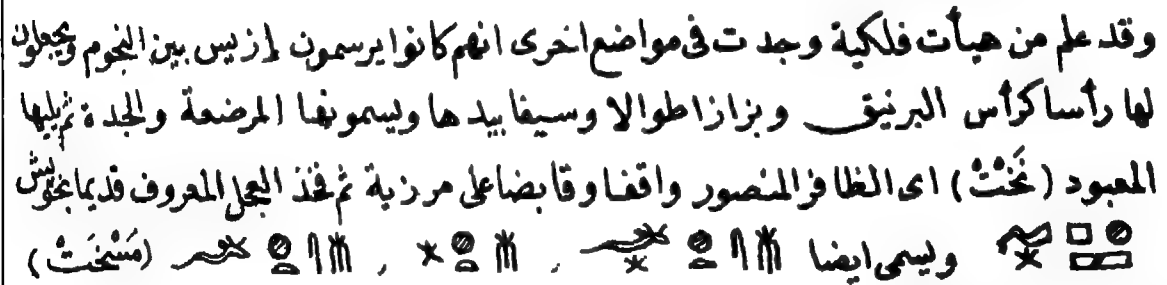 وقد علم من هيأت فلكية وجدت فى مواضع اخرى انهم كانوا يرسمون إزيس بين النجوم ويجعلون
لها رأسا كرأس البرنيق وبزازا طوالا وسيفا بيدها ويسمونها المرضعة والجدة ثم يليها
المعبود (نَخْتْ) اى الظافر المنصور واقفا وقابضا على مرزبة ثم فخذ العجل المعروف قديما بخوپش
ويسمى ايضا , , (مَسْخَتْ)